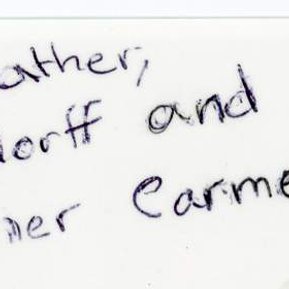 ather,
dorff and
ner Carme